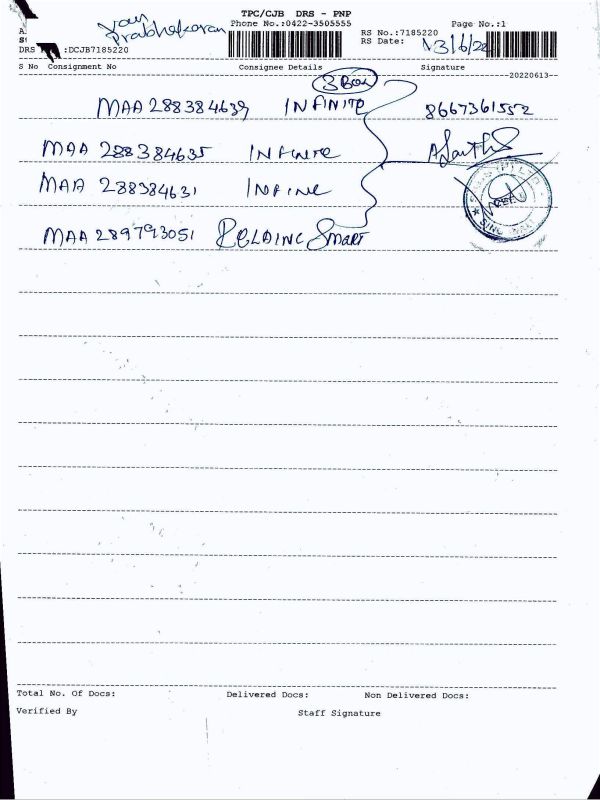 TPC/CJB DRS - PNP
Van Prabhakaran
Phone No.:0422-3505555
Page No.:1
RS No.:7185220
RS Date: 13/6/22
DRS :DCJB7185220
S No Consignment No Consignee Details Signature
--20220613--
3 Box
MAA 288384639 INFINITE 8667361552
MAA 288384635 INFINITE
MAA 288384631 INFINE
MAA 289793051 RELAINC SMART
Total No. Of Docs: Delivered Docs: Non Delivered Docs:
Verified By Staff Signature